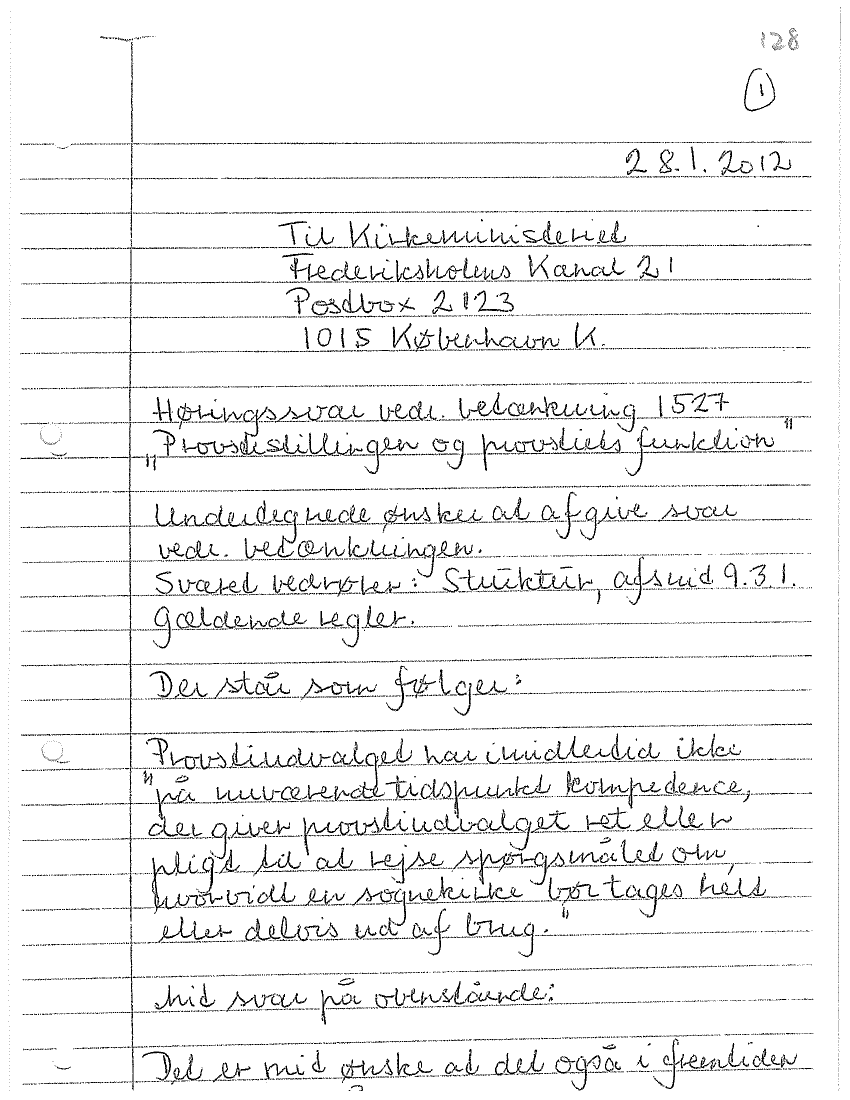 128
1
28.1.2012
Til Kirkeministeriet
Frederiksholms Kanal 21
Postbox 2123
1015 København K.
Høringssvar vedr. betænkning 1527
"Provstestillingen og provstiets funktion"
Undertegnede ønsker at afgive svar
vedr. betænkningen.
Svaret vedrører: Struktur, afsnid 9.3.1.
Gældende regler.
Der står som følger:
Provstiudvalget har imidlertid ikke
"på nuværende tidspunkt kompedence,
der giver provstiudvalget ret eller
pligt til at rejse spørgsmålet om,
hvorvidt en sognekirke bør tages helt
eller delvis ud af brug."
Mit svar på ovenstående:
Det er mit ønske at det også i fremtiden